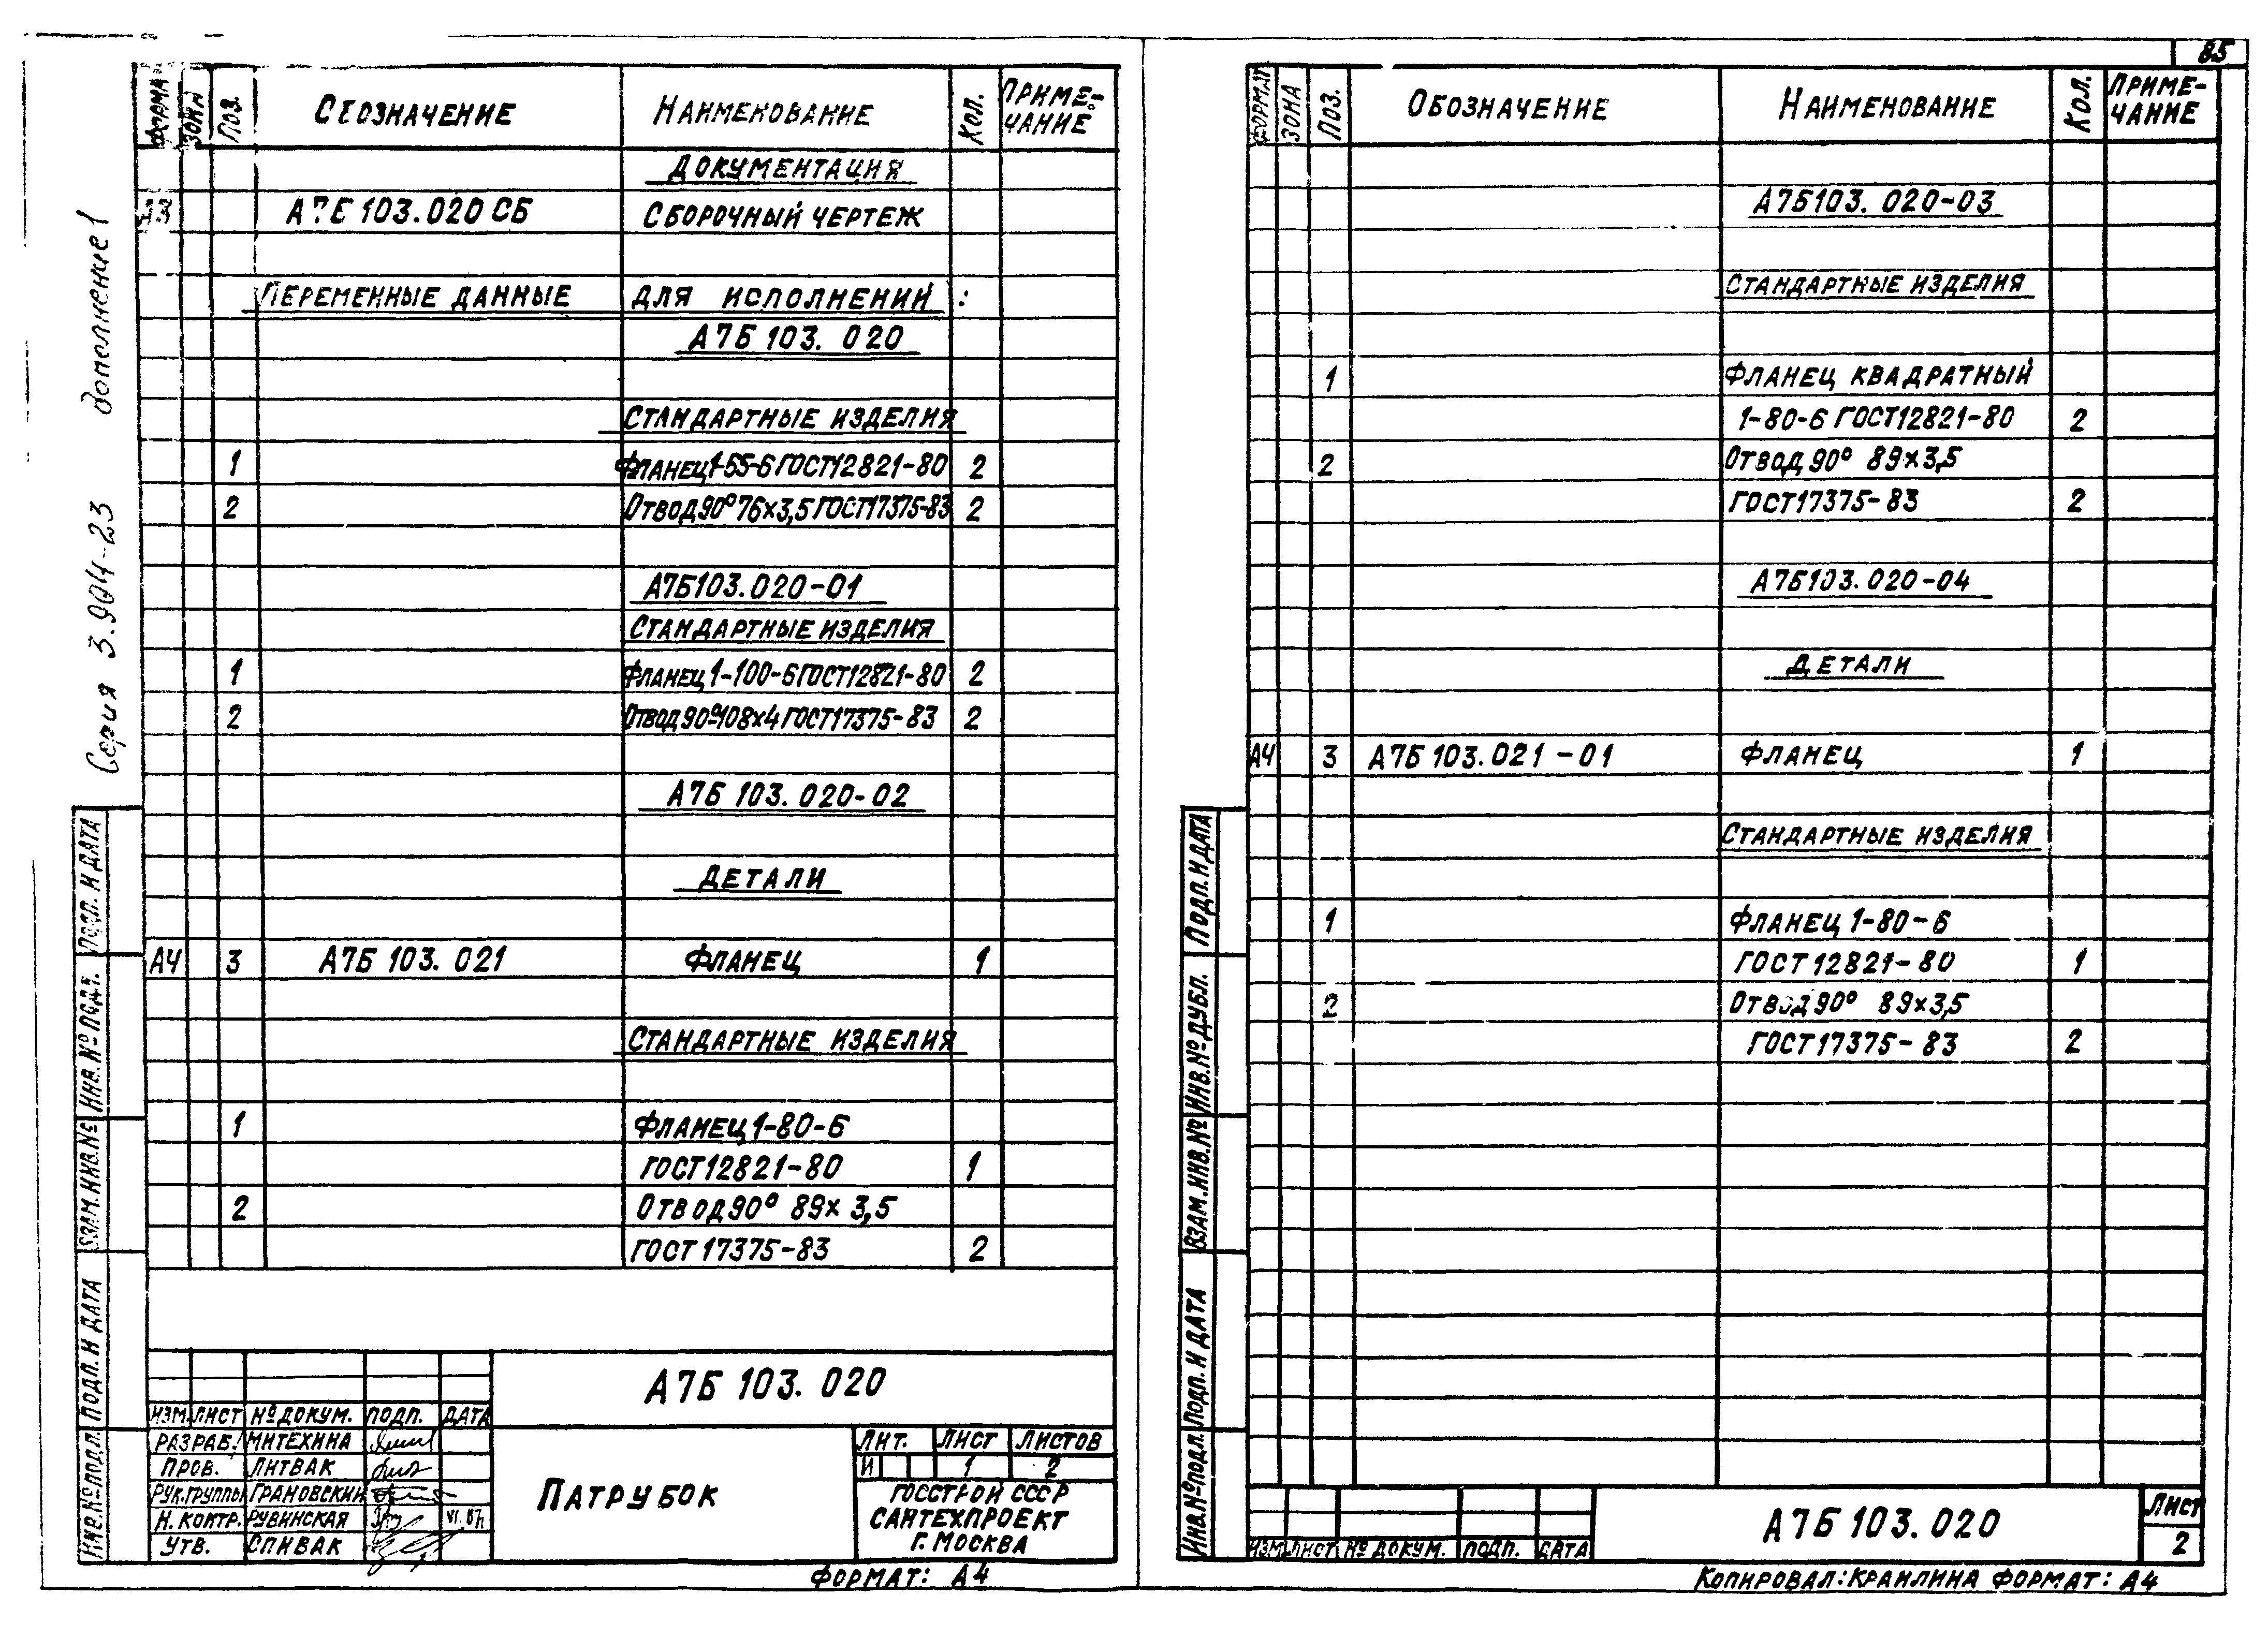 85
Серия 3.904-23 дополнение 1
ФОРМА ЗОНА ПОЗ. ОБОЗНАЧЕНИЕ НАИМЕНОВАНИЕ КОЛ. ПРИМЕ-
ЧАНИЕ
ДОКУМЕНТАЦИЯ
А3 А7Б 103.020 СБ СБОРОЧНЫЙ ЧЕРТЕЖ
ПЕРЕМЕННЫЕ ДАННЫЕ ДЛЯ ИСПОЛНЕНИЙ :
А7Б 103. 020
СТАНДАРТНЫЕ ИЗДЕЛИЯ
1 ФЛАНЕЦ 1-65-6 ГОСТ12821-80 2
2 ОТВОД 90° 76×3,5 ГОСТ17375-83 2
А7Б103.020-01
СТАНДАРТНЫЕ ИЗДЕЛИЯ
1 ФЛАНЕЦ 1-100-6 ГОСТ12821-80 2
2 ОТВОД 90° 108×4 ГОСТ17375-83 2
А7Б 103. 020-02
ДЕТАЛИ
А4 3 А7Б 103. 021 ФЛАНЕЦ 1
СТАНДАРТНЫЕ ИЗДЕЛИЯ
1 ФЛАНЕЦ 1-80-6
ГОСТ12821-80 1
2 ОТВОД 90° 89×3,5
ГОСТ 17375-83 2
ПОДП. И ДАТА
ИНВ.№ ДУБЛ.
ВЗАМ.ИНВ.№
ПОДП. И ДАТА
ИНВ.№ ПОДЛ.
А7Б 103. 020
ИЗМ. ЛИСТ № ДОКУМ. ПОДП. ДАТА
РАЗРАБ. МИТЕХИНА
ПРОВ. ЛИТВАК
РУК.ГРУППЫ ГРАНОВСКИЙ
Н. КОНТР. РУВИНСКАЯ
УТВ. СПИВАК
ПАТРУБОК
ЛИТ. ЛИСТ ЛИСТОВ
И 1 2
ГОССТРОЙ СССР
САНТЕХПРОЕКТ
Г. МОСКВА
ФОРМАТ: А4
ФОРМАТ ЗОНА ПОЗ. ОБОЗНАЧЕНИЕ НАИМЕНОВАНИЕ КОЛ. ПРИМЕ-
ЧАНИЕ
А7Б103. 020-03
СТАНДАРТНЫЕ ИЗДЕЛИЯ
1 ФЛАНЕЦ КВАДРАТНЫЙ
1-80-6 ГОСТ12821-80 2
2 ОТВОД 90° 89×3,5
ГОСТ17375-83 2
А7Б103.020-04
ДЕТАЛИ
А4 3 А7Б 103.021-01 ФЛАНЕЦ 1
СТАНДАРТНЫЕ ИЗДЕЛИЯ
1 ФЛАНЕЦ 1-80-6
ГОСТ 12821-80 1
2 ОТВОД 90° 89×3,5
ГОСТ17375-83 2
ПОДП. И ДАТА
ИНВ.№ ДУБЛ.
ВЗАМ.ИНВ.№
ПОДП. И ДАТА
ИНВ.№ ПОДЛ.
ИЗМ. ЛИСТ № ДОКУМ. ПОДП. ДАТА
А7Б 103. 020
ЛИСТ
2
КОПИРОВАЛ: КРАНЛИНА ФОРМАТ: А4